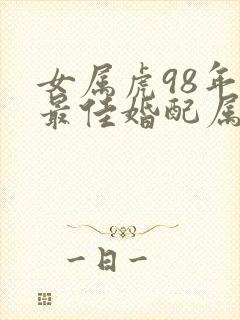 女属虎98年
最佳婚配属
一日一